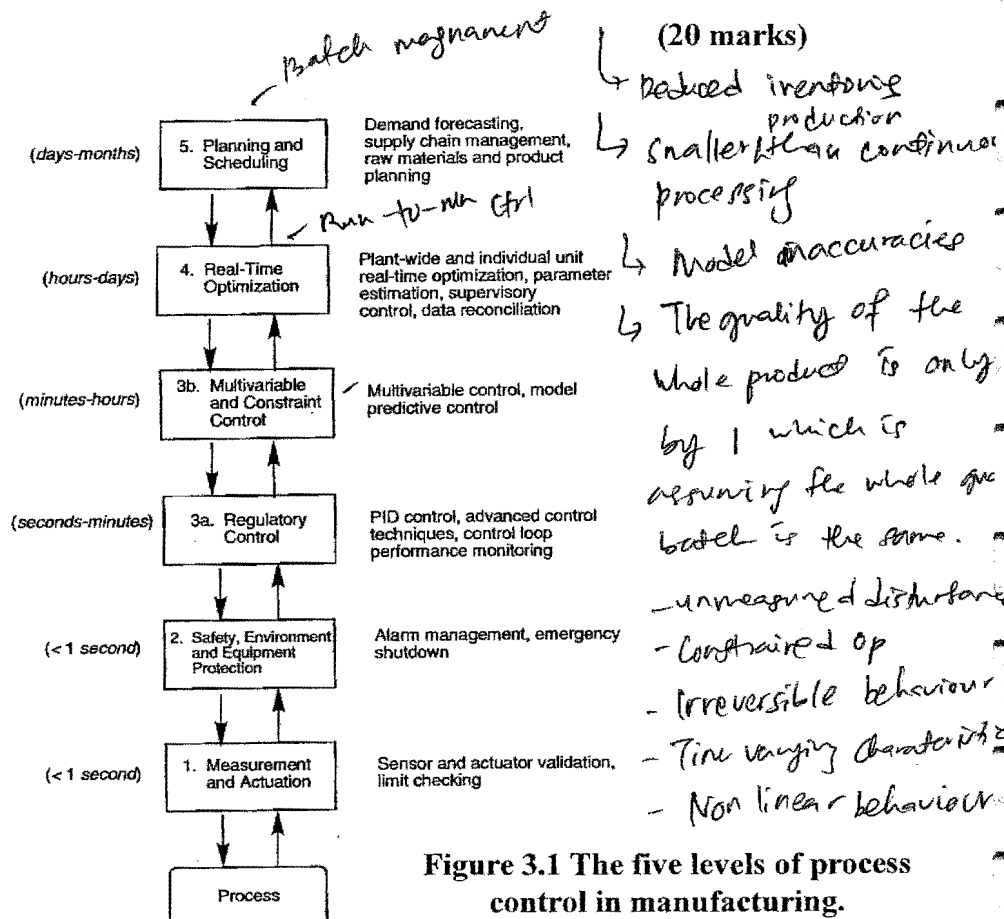 Batch magnanent
(20 marks)
↳ Reduced inentoring
production
↳ smaller than continuo
processing
↳ Model inaccuracies
↳ The quality of the
whole product is only
by 1 which is
assuming the whole qua
batch is the same.
- unmeasured disturban
- Constrained op
- Irreversible behaviour
- Time varying characteristic
- Non linear behaviour
(days-months)
5. Planning and
Scheduling
Demand forecasting,
supply chain management,
raw materials and product
planning
Run-to-run Ctrl
(hours-days)
4. Real-Time
Optimization
Plant-wide and individual unit
real-time optimization, parameter
estimation, supervisory
control, data reconciliation
(minutes-hours)
3b. Multivariable
and Constraint
Control
Multivariable control, model
predictive control
(seconds-minutes)
3a. Regulatory
Control
PID control, advanced control
techniques, control loop
performance monitoring
(< 1 second)
2. Safety, Environment
and Equipment
Protection
Alarm management, emergency
shutdown
(< 1 second)
1. Measurement
and Actuation
Sensor and actuator validation,
limit checking
Process
Figure 3.1 The five levels of process
control in manufacturing.